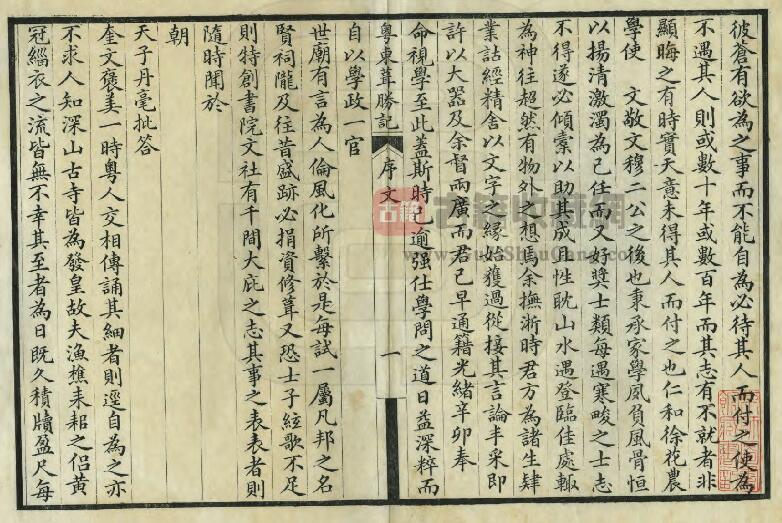 彼蒼有欲為之事而不能自為必待其人而付之使為
不遇其人則或數十年或數百年而其志有不就者非
顯晦之有時實天意未得其人而付之也仁和徐花農
學使　文敬文穆二公之後也秉承家學夙負風骨恒
以揚清激濁為己任而又好奬士類每遇寒畯之士志
不得遂必傾橐以助其成且性耽山水遇登臨佳處輒
為神往超然有物外之想焉余撫浙時君方為諸生肄
業詁經精舍以文字之緣始獲過從接其言論丰采即
許以大器及余督兩廣而君已早通籍光緒辛卯奉
命視學至此蓋斯時已逾强仕學問之道日益深粹而
粵東葺勝記　序文　一
自以學政一官
世廟有言為人倫風化所繫於是每試一屬凡邦之名
賢祠隴及往昔盛跡必捐資修葺又恐士子絃歌不足
則特創書院文社有千間大庇之志其事之表表者則
隨時聞於
朝
天子丹毫批答
奎文褒美一時粵人交相傳誦其細者則逕自為之亦
不求人知深山古寺皆為發皇故夫漁樵耒耜之侶黃
冠緇衣之流皆無不幸其至者為日既久積牘盈尺每
古籍收藏網